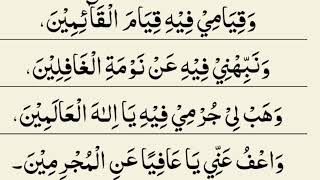 وَقِيَامِيْ فِيْهِ قِيَامَ الْقَآئِمِيْنَ،
وَنَبِّهْنِيْ فِيْهِ عَنْ نَوْمَةِ الْغَافِلِيْنَ،
وَهَبْ لِيْ جُرْمِيْ فِيْهِ يَا اِلٰهَ الْعَالَمِيْنَ،
وَاعْفُ عَنِّيْ يَا عَافِيًا عَنِ الْمُجْرِمِيْنَ۔